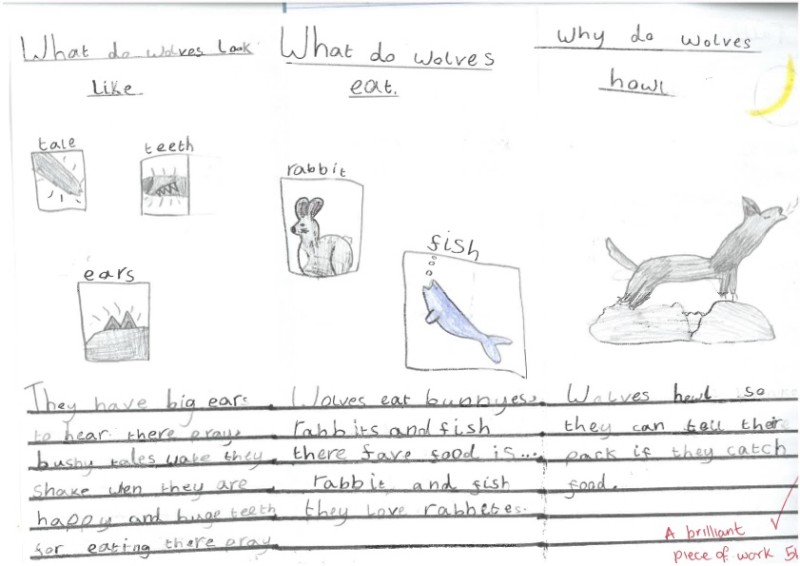 What do wolves Look
Like
tale
teeth
ears
They have big ears
to hear there pray,
bushy tales wate they
shake wen they are
happy and huge teeth
for eating there pray
What do wolves
eat.
rabbit
fish
Wolves eat bunnyes,
rabbits and fish
there fave food is...
rabbit and fish
they love rabbites.
Why do wolves
howl
Wolves howl so
they can tell there
pack if they catch
food.
A brilliant
piece of work